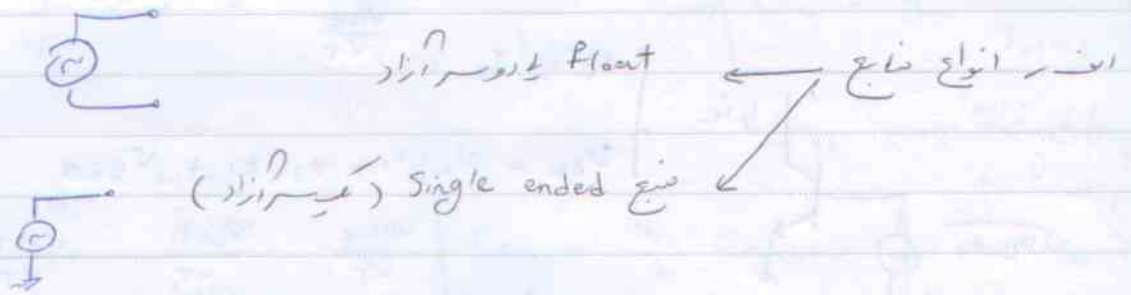 انواع منابع float یا دو سر آزاد
منبع Single ended (یکسر آزاد)